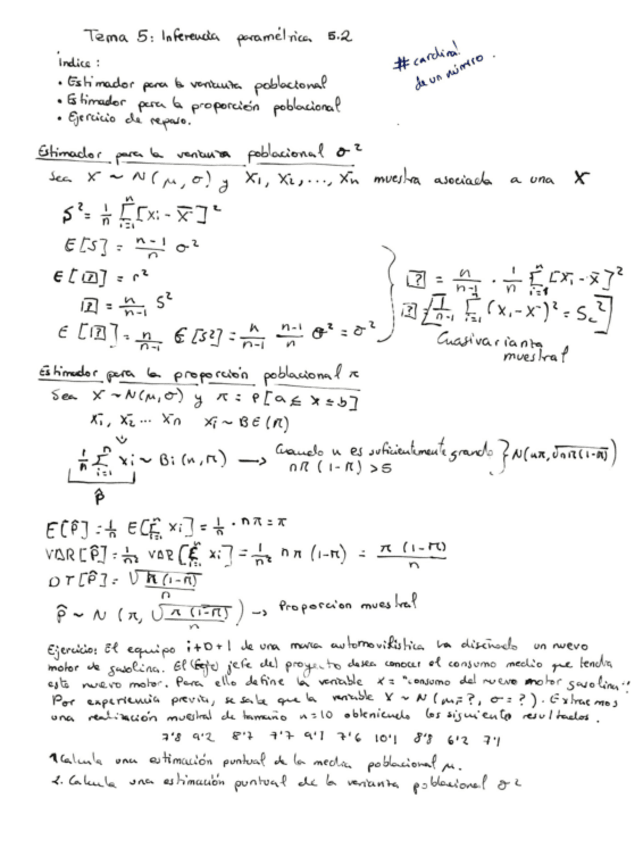 Tema 5: Inferencia paramétrica 5.2
# cardinal
de un número.
índice:
• Estimador para la varianza poblacional
• Estimador para la proporción poblacional
• Ejercicio de repaso.
Estimador para la varianza poblacional σ²
Sea X ~ N(μ, σ) y X1, X2, ..., Xn muestra asociada a una X
S² = 1/n Σ(i=1, n) [xi - X̄]²
E[S] = n-1/n σ²
E[[?]] = σ²
[?] = n/n-1 S²
E[[?]] = n/n-1 E[S²] = n/n-1 n-1/n σ² = σ²
[?] = n/n-1 · 1/n Σ(i=1, n) [xi - x̄]²
[?] = [1/n-1 Σ(i=1, n) (xi - x̄)² = Sc²]
Cuasivarianza
muestral
Estimador para la proporción poblacional π
Sea X ~ N(μ, σ) y π = P[a ≤ x ≤ b]
x1, x2 ... xn xi ~ BE(π)
1/n Σ(i=1, n) xi ~ Bi(n, π) → Cuando n es suficientemente grande } N(nπ, √nπ(1-π))
nπ(1-π) > 5
p̂
E[p̂] = 1/n E[Σ(i=1, n) xi] = 1/n · nπ = π
VAR[p̂] = 1/n² VAR[Σ(i=1, n) xi] = 1/n² nπ(1-π) = π(1-π)/n
DT[p̂] = √π(1-π)/n
p̂ ~ N(π, √π(1-π)/n) → Proporcion muestral
Ejercicio: El equipo i+D+I de una marca automovilística ha diseñado un nuevo
motor de gasolina. El jefe del proyecto desea conocer el consumo medio que tendrá
este nuevo motor. Para ello define la variable X = "consumo del nuevo motor gasolina"
Por experiencia previa, se sabe que la variable X ~ N(μ=?, σ=?). Extraemos
una realización muestral de tamaño n=10 obteniendo los siguiente resultados.
7'8 9'2 8'7 7'7 9'1 7'6 10'1 8'8 6'2 7'1
1 Calcula una estimación puntual de la media poblacional μ.
2. Calcula una estimación puntual de la varianza poblacional σ²